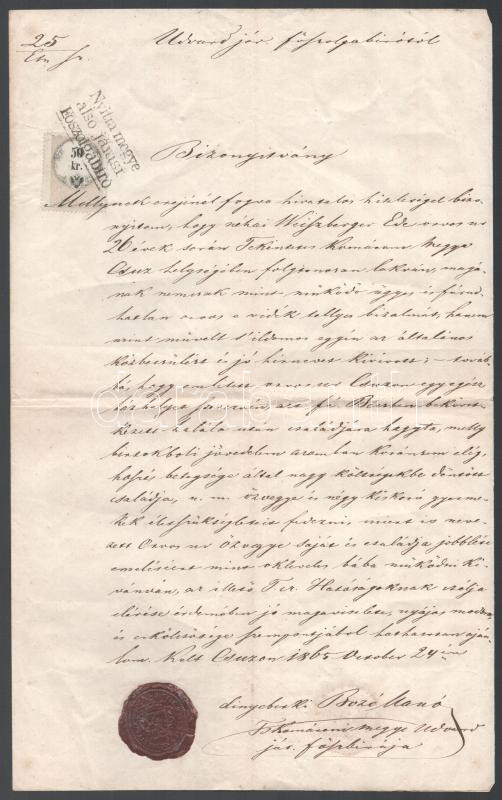 25
Udvard jár. főszolgabírótól
Nyitra megye
alsó járási
Főszolgabíró
50
kr.
Bizonyítvány
Mellynek erejénél fogva hivatalos hitelességgel bizo-
nyítom, hogy néhai Weiszberger Ede orvos ur
26 évek során Tekintetes Komárom megye
Csuz helységében folytonosan lakván, magá-
nak nemcsak mint működő ügyes és fárad-
hatlan orvos a vidék tellyes bizalmát, hanem
mint művelt s' ildomos egyén az általános
közbecsülést és jó hírnevet kivivott; – továb-
bá, hogy említett orvos ur Csuzon egy egész
halála után családjára hagyta, melly
jövedelem azonban koránsem elég,
hosszas betegsége által nagy költségekbe döntött
családja, u. m. özvegye és négy kiskorú gyerme-
kek életszükségleteit fedezni, miért is neve-
zett Orvos ur Özvegye saját és családja jobblété
emeléseért mint okleveles bába működni ki-
vánván, az illető Tör. Hatóságoknak czélja
elérése érdemében jó magaviselete,
és erkölcsisége szempontjából hathatósan aján-
lom. Kelt Csuzon 1865 October 24én
Bozó Manó
Ts Komárom megye Udvard
jár. főszbirája
darabanth.com